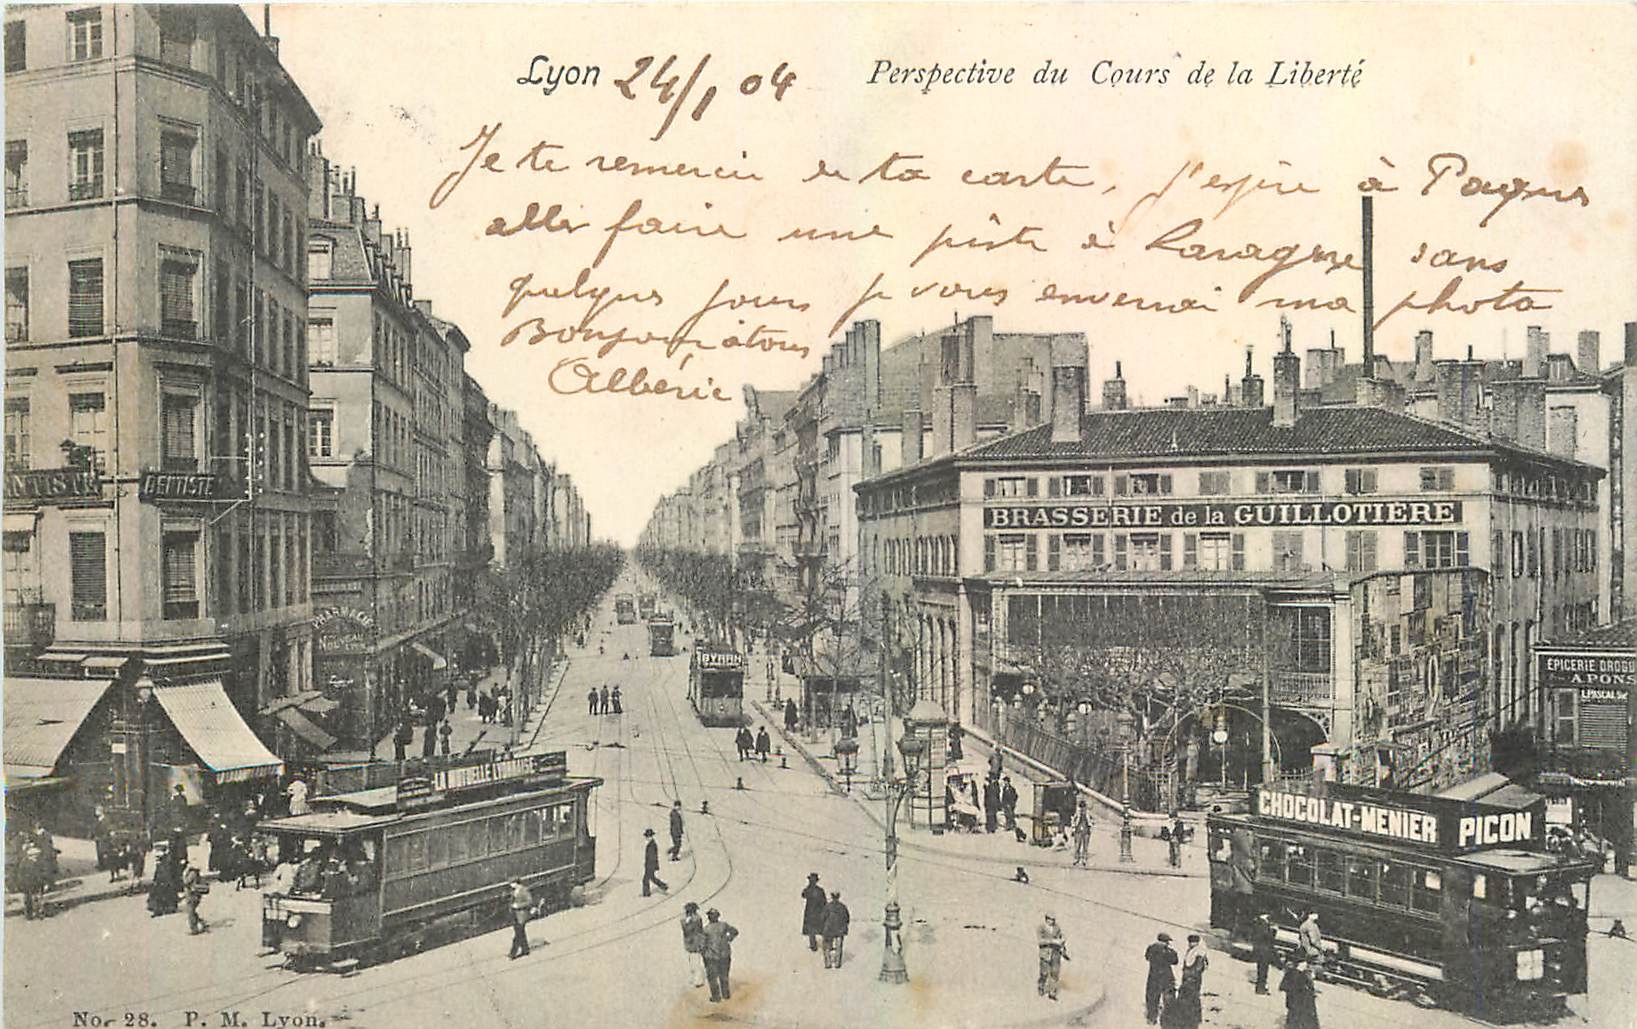 Lyon 24/1 04 Perspective du Cours de la Liberté
Je te remercie de ta carte, j'espère à Paques
aller faire une piste à Laragne sans
quelques jours je vous enverrai ma photo
Bonjour à tous
Albéric
DENTISTE
BRASSERIE de la GUILLOTIÈRE
PHARMACIE
BYRRH
ÉPICERIE DROGU
A. PONS
L. PASCAL Sr
LA NOUVELLE LYONNAISE
CHOCOLAT-MENIER PICON
No. 28. P. M. Lyon.